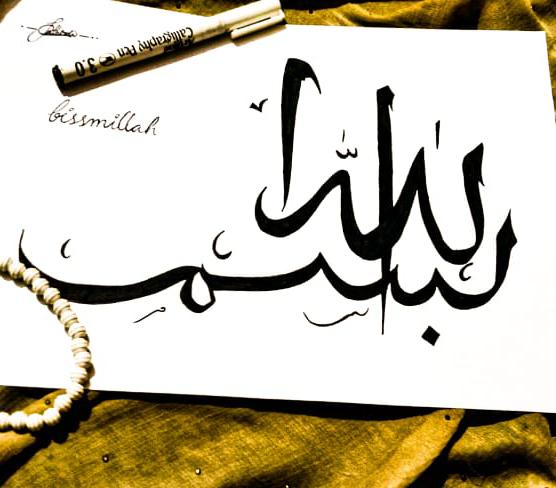 Calligraphy Pen 3.0
bissmillah
بسم الله